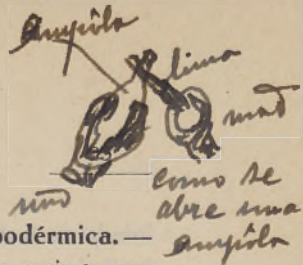 ampôla
lima
mão
mão
como se
abre uma
ampôla
podérmica. —